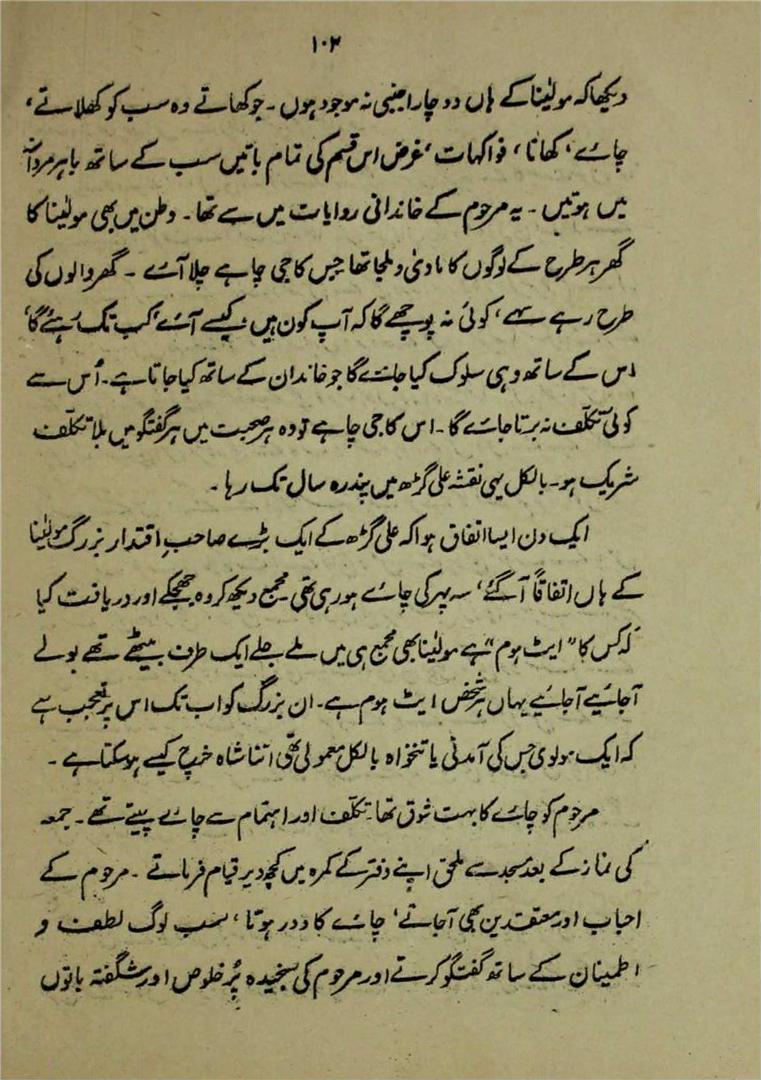 ۱۰۲
دیکھا کہ مولینا کے ہاں دو چار اجنبی نہ موجود ہوں ۔ جو کھاتے وہ سب کو کھلاتے،
چائے، کھانا، فواکہات، غرض اس قسم کی تمام باتیں سب کے ساتھ باہر مردانہ
میں ہوتیں ۔ یہ مرحوم کے خاندانی روایات میں سے تھا ۔ وطن میں بھی مولینا کا
گھر ہر طرح کے لوگوں کا ماویٰ و ملجا تھا جس کا جی چاہے چلا آئے ۔ گھر والوں کی
طرح رہے سہے، کوئی نہ پوچھے گا کہ آپ کون ہیں، کیسے آئے، کب تک رہئے گا،
اس کے ساتھ وہی سلوک کیا جائے گا جو خاندان کے ساتھ کیا جاتا ہے ۔ اُس سے
کوئی تکلّف نہ برتا جائے گا ۔ اس کا جی چاہے تو وہ ہر صحبت میں ہر گفتگو میں بلا تکلّف
شریک ہو ۔ بالکل یہی نقشہ علی گڑھ میں پندرہ سال تک رہا ۔
ایک دن ایسا اتفاق ہوا کہ علی گڑھ کے ایک بڑے صاحبِ اقتدار بزرگ مولینا
کے ہاں اتفاقاً آگئے، سہ پہر کی چائے ہو رہی تھی مجمع دیکھ کر وہ جھجکے اور دریافت کیا
کہ کس کا ”ایٹ ہوم“ ہے مولینا بھی مجمع ہی میں ملے جلے ایک طرف بیٹھے تھے بولے
آجائیے آجائیے یہاں ہر شخص ایٹ ہوم ہے ۔ ان بزرگ کو اب تک اس پر تعجب ہے
کہ ایک مولوی جس کی آمدنی یا تنخواہ بالکل معمولی تھی اتنا شاہ خرچ کیسے ہو سکتا ہے ۔
مرحوم کو چائے کا بہت شوق تھا ۔ تکلّف اور اہتمام سے چائے پیتے تھے ۔ جمعہ
کی نماز کے بعد مسجد سے ملحق اپنے دفتر کے کمرہ میں کچھ دیر قیام فرماتے ۔ مرحوم کے
احباب اور معتقدین بھی آجاتے، چائے کا دور ہوتا، سب لوگ لطف و
اطمینان کے ساتھ گفتگو کرتے اور مرحوم کی سنجیدہ پُر خلوص اور شگفتہ باتوں